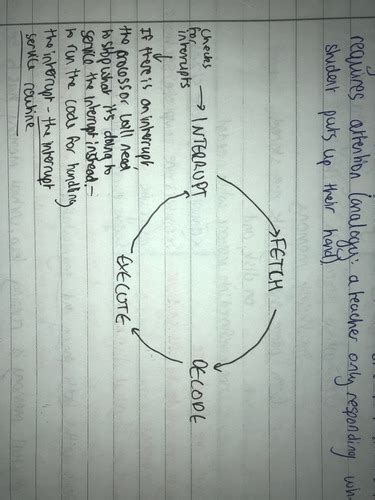 requires attention (analogy: a teacher only responding wh
student puts up their hand)
checks
for
interrupts
→ INTERRUPT
FETCH
DECODE
EXECUTE
If there is an interrupt,
the processor will need
to stop what its doing to
service the interrupt instead -
to run the code for handling
the interrupt - the interrupt
service routine